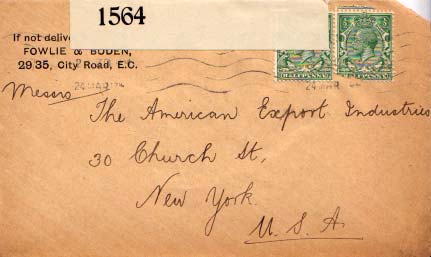 1564
If not delive
FOWLIE & BODEN,
29 35, City Road, E.C.
24 MAR
24 MAR
HALFPENNY
HALFPENNY
Messrs
The American Export Industries
30 Church St,
New York.
U. S. A.